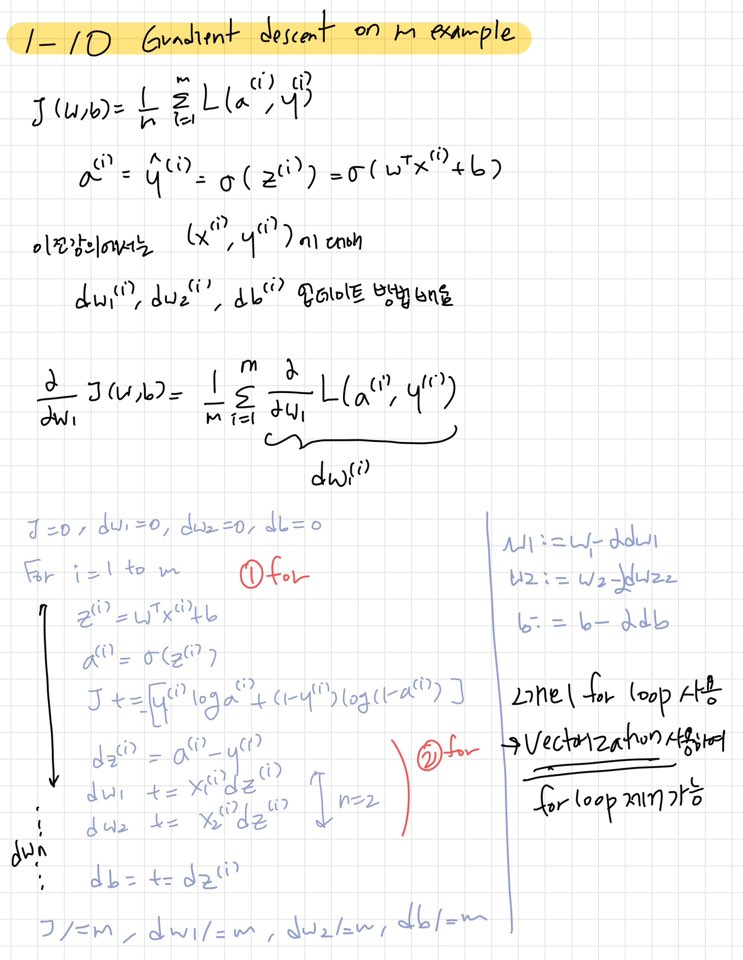 1-10 Gradient descent on m example
J(w,b) = 1/n Σ_{i=1}^{m} L(a^(i), y^(i))
a^(i) = ŷ^(i) = σ(z^(i)) = σ(w^T x^(i) + b)
이전강의에서는 (x^(i), y^(i))에 대해
dw₁^(i), dw₂^(i), db^(i) 업데이트 방법 배움
∂/∂w₁ J(w,b) = 1/m Σ_{i=1}^{m} ∂/∂w₁ L(a^(i), y^(i))
dw₁^(i)
J=0, dw₁=0, dw₂=0, db=0
For i=1 to m ① for
z^(i) = w^T x^(i) + b
a^(i) = σ(z^(i))
J += -[y^(i) log a^(i) + (1-y^(i)) log(1-a^(i))]
dz^(i) = a^(i) - y^(i)
dw₁ += x₁^(i) dz^(i)
dw₂ += x₂^(i) dz^(i)
n=2
② for
dwn
db = += dz^(i)
J/=m, dw₁/=m, dw₂/=m, db/=m
w₁ := w₁ - αdw₁
w₂ := w₂ - αdw₂₂
b := b - αdb
2개의 for loop 사용
→ Vectorization 사용하여
for loop 제거 가능